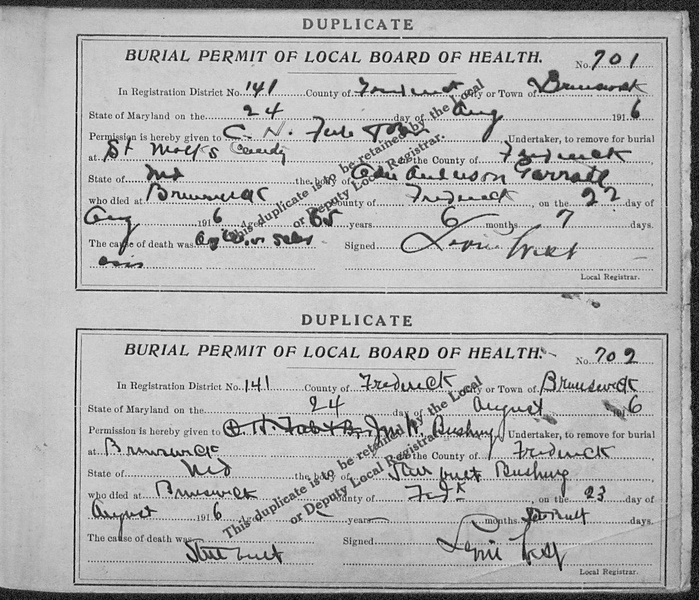 DUPLICATE
BURIAL PERMIT OF LOCAL BOARD OF HEALTH. No. 701
In Registration District No. 141 County of Frederick City or Town of Brunswick
State of Maryland on the 24 day of Aug 1916
Permission is hereby given to C. N. Undertaker, to remove for burial
at St Marks in the County of Frederick
State of Md the body of Anderson
who died at Brunswick County of Frederick, on the 22 day of
Aug 1916 Age 65 years 6 months 7 days.
The cause of death was Signed Levin West
Local Registrar.
This duplicate is to be retained by the Local
or Deputy Local Registrar.
DUPLICATE
BURIAL PERMIT OF LOCAL BOARD OF HEALTH. No. 702
In Registration District No. 141 County of Frederick City or Town of Brunswick
State of Maryland on the 24 day of August 1916
Permission is hereby given to Jno W. Bushey Undertaker, to remove for burial
at Brunswick in the County of Frederick
State of Md the body of Bushey
who died at Brunswick County of Fredk, on the 23 day of
August 1916 Age years months days.
The cause of death was Signed Levin West
Local Registrar.
This duplicate is to be retained by the Local
or Deputy Local Registrar.